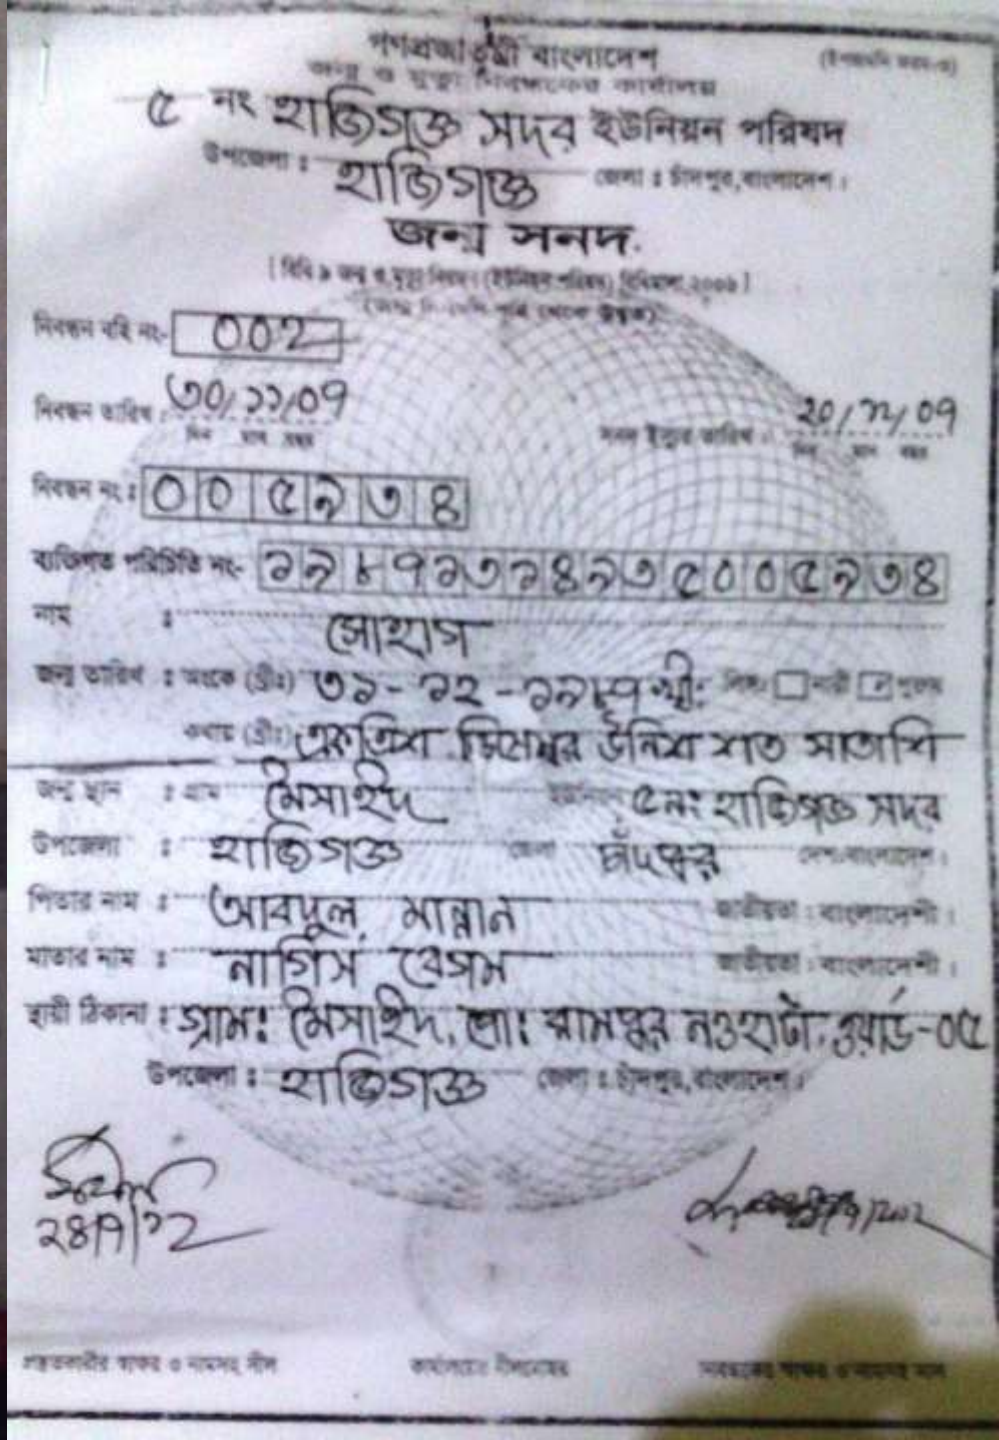 গণপ্রজাতন্ত্রী বাংলাদেশ
জন্ম ও মৃত্যু নিবন্ধকের কার্যালয়
৫ নং হাজিগঞ্জ সদর ইউনিয়ন পরিষদ
উপজেলা : হাজিগঞ্জ জেলা : চাঁদপুর, বাংলাদেশ।
জন্ম সনদ
[ বিধি ৯ জন্ম ও মৃত্যু নিবন্ধন (ইউনিয়ন পরিষদ) বিধিমালা, ২০০৬ ]
নিবন্ধন বহি নং- ০০২
নিবন্ধন তারিখ : ৩০/১১/০৭ সনদ ইস্যুর তারিখ :
দিন মাস বছর দিন মাস বছর
নিবন্ধন নং : ০০৫৯৩৪
ব্যক্তিগত পরিচিতি নং- ১৯৮৭১৩১৪৯৩৫০০৫৯৩৪
নাম : সোহাগ
জন্ম তারিখ : অংকে (খ্রীঃ) ৩১-১২-১৯৮৭ খ্রী: লিঙ্গ: নারী পুরুষ
কথায় (খ্রীঃ) একত্রিশ ডিসেম্বর উনিশ শত সাতাশি
জন্ম স্থান : গ্রাম মৈসাইদ ইউনিয়ন ৫নং হাজিগঞ্জ সদর
উপজেলা : হাজিগঞ্জ জেলা চাঁদপুর দেশ:বাংলাদেশ।
পিতার নাম : আবদুল মান্নান জাতীয়তা : বাংলাদেশী।
মাতার নাম : নার্গিস বেগম জাতীয়তা : বাংলাদেশী।
স্থায়ী ঠিকানা : গ্রাম: মৈসাইদ, পো: রামপুর নওহাটা, ওয়ার্ড-০৫
উপজেলা : হাজিগঞ্জ জেলা : চাঁদপুর, বাংলাদেশ।
২৪/৭/১২
প্রস্তুতকারীর স্বাক্ষর ও নামসহ সীল কার্যালয়ের সীলমোহর নিবন্ধকের স্বাক্ষর ও নামসহ সীল